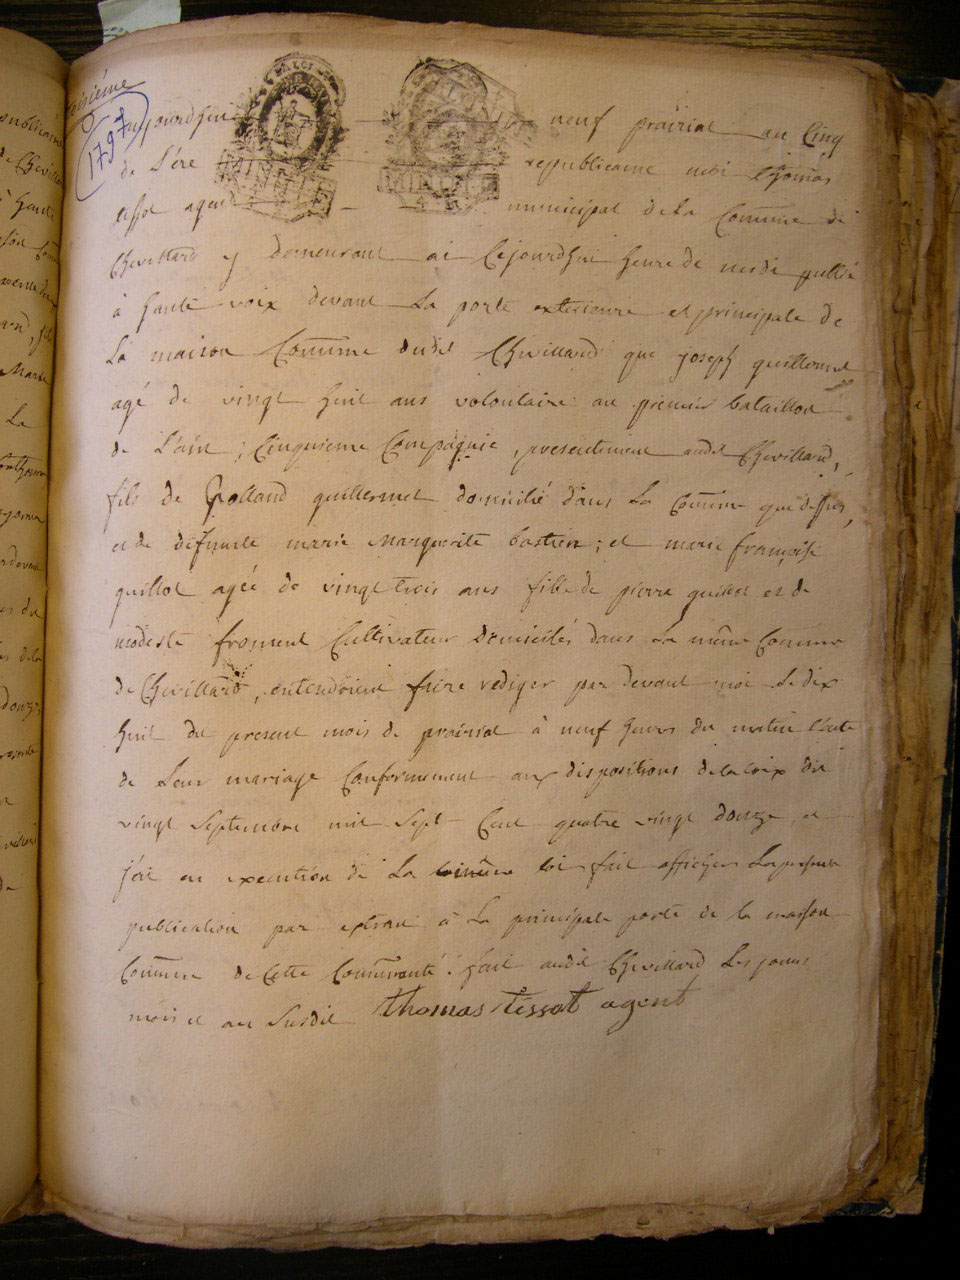 1797
aujourdhui neuf prairial an Cinq
de L'ère republicaine moi thomas
tissot agent municipal de la Commune de
Chevillard y demeurant ai Cejourdhui heure de midi publié
à haute voix devant La porte exterieure et principale de
La maison Commune dudit Chevillard que joseph guillermet
agé de vingt huit ans volontaire au premier bataillon
de L'ain, Cinquieme Compagnie, presentement audit Chevillard,
fils de Rolland guillermet domicilié dans La Commune que dessus,
et de defunte marie Marguerite bastien; et marie françoise
guillot agée de vingt trois ans fille de pierre guillot et de
modeste froment Cultivateur Domiciliés dans La même Commune
de Chevillard, entendoient faire rediger par devant moi Le dix
huit du present mois de prairial à neuf heures du matin l'acte
de Leur mariage Conformement aux dispositions de la loix du
vingt Septembre mil Sept Cent quatre vingt douze, et
j'ai en execution de La même loi fait afficher La presente
publication par extrait à La principale porte de la maison
Commune de Cette Communauté. fait audit Chevillard Les jours
mois et an Susdit thomas tissot agent